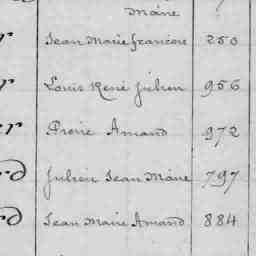 Marie
r Jean Marie françois 250
r Louis René Julien 956
er Pierre Amand 972
rd Julien Jean Marie 797
rd Jean Marie Amand 884